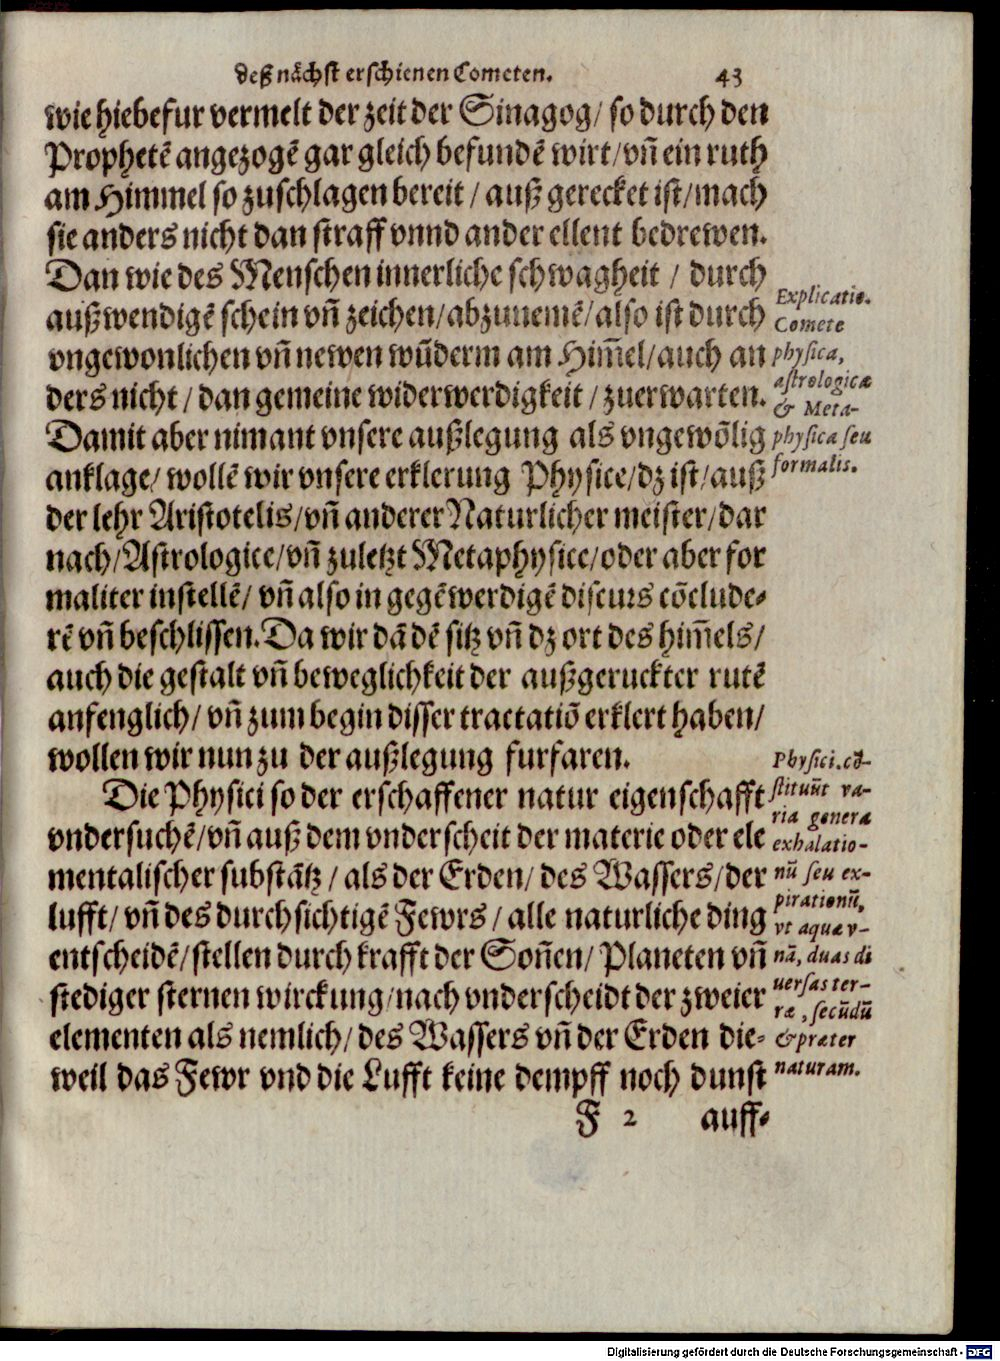 deß nächst erschienen Cometen. 43
wie hiebefur vermelt der zeit der Sinagog/ so durch den
Prophetē angezogē gar gleich befundē wirt/ vñ ein ruth
am Himmel so zuschlagen bereit / auß gerecket ist/ mach
sie anders nicht dan straff vnnd ander ellent bedrewen.
Dan wie des Menschen innerliche schwagheit / durch
außwendigē schein vñ zeichen/ abzunemē/ also ist durch
vngewonlichen vñ newen wūderm am Him̄el/ auch an
ders nicht / dan gemeine widerwerdigkeit / zuerwarten.
Damit aber nimant vnsere außlegung als vngewölig
anklage/ wollē wir vnsere erklerung Physice/ dz ist/ auß
der lehr Aristotelis/ vñ anderer Naturlicher meister/ dar
nach/ Astrologice/ vñ zuletzt Metaphysice/ oder aber for
maliter instellē/ vñ also in gegēwerdigē discurs cōclude-
rē vñ beschlissen. Da wir dā dē sitz vñ dz ort des him̄els/
auch die gestalt vñ beweglichkeit der außgeruckter rutē
anfenglich/ vñ zum begin disser tractatiō erklert haben/
wollen wir nun zu der außlegung furfaren.
Die Physici so der erschaffener natur eigenschafft
vndersuchē/ vñ auß dem vnderscheit der materie oder ele
mentalischer substātz / als der Erden/ des Wassers/ der
lufft/ vñ des durchsichtigē Fewrs / alle naturliche ding
entscheidē/ stellen durch krafft der Soñen/ Planeten vñ
stediger sternen wirckung/ nach vnderscheidt der zweier
elementen als nemlich/ des Wassers vñ der Erden die-
weil das Fewr vnd die Lufft keine dempff noch dunst
F 2 auff-
Explicatio.
Comete
physica,
astrologica
& Meta-
physica seu
formalis.
Physici. cō-
stituūt va-
ria genera
exhalatio-
nū seu ex-
pirationū,
vt aquæ v-
nā, duas di
uersas ter-
ræ, secūdū
& præter
naturam.
Digitalisierung gefördert durch die Deutsche Forschungsgemeinschaft - DFG